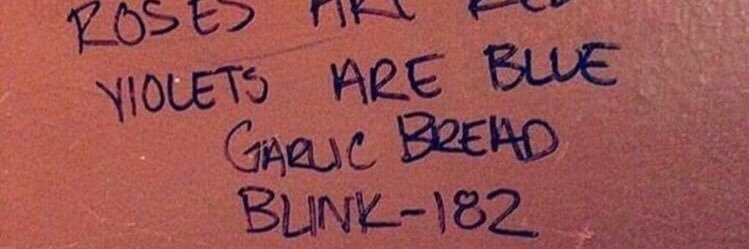 ROSES ARE RED
VIOLETS ARE BLUE
GARLIC BREAD
BLINK-182